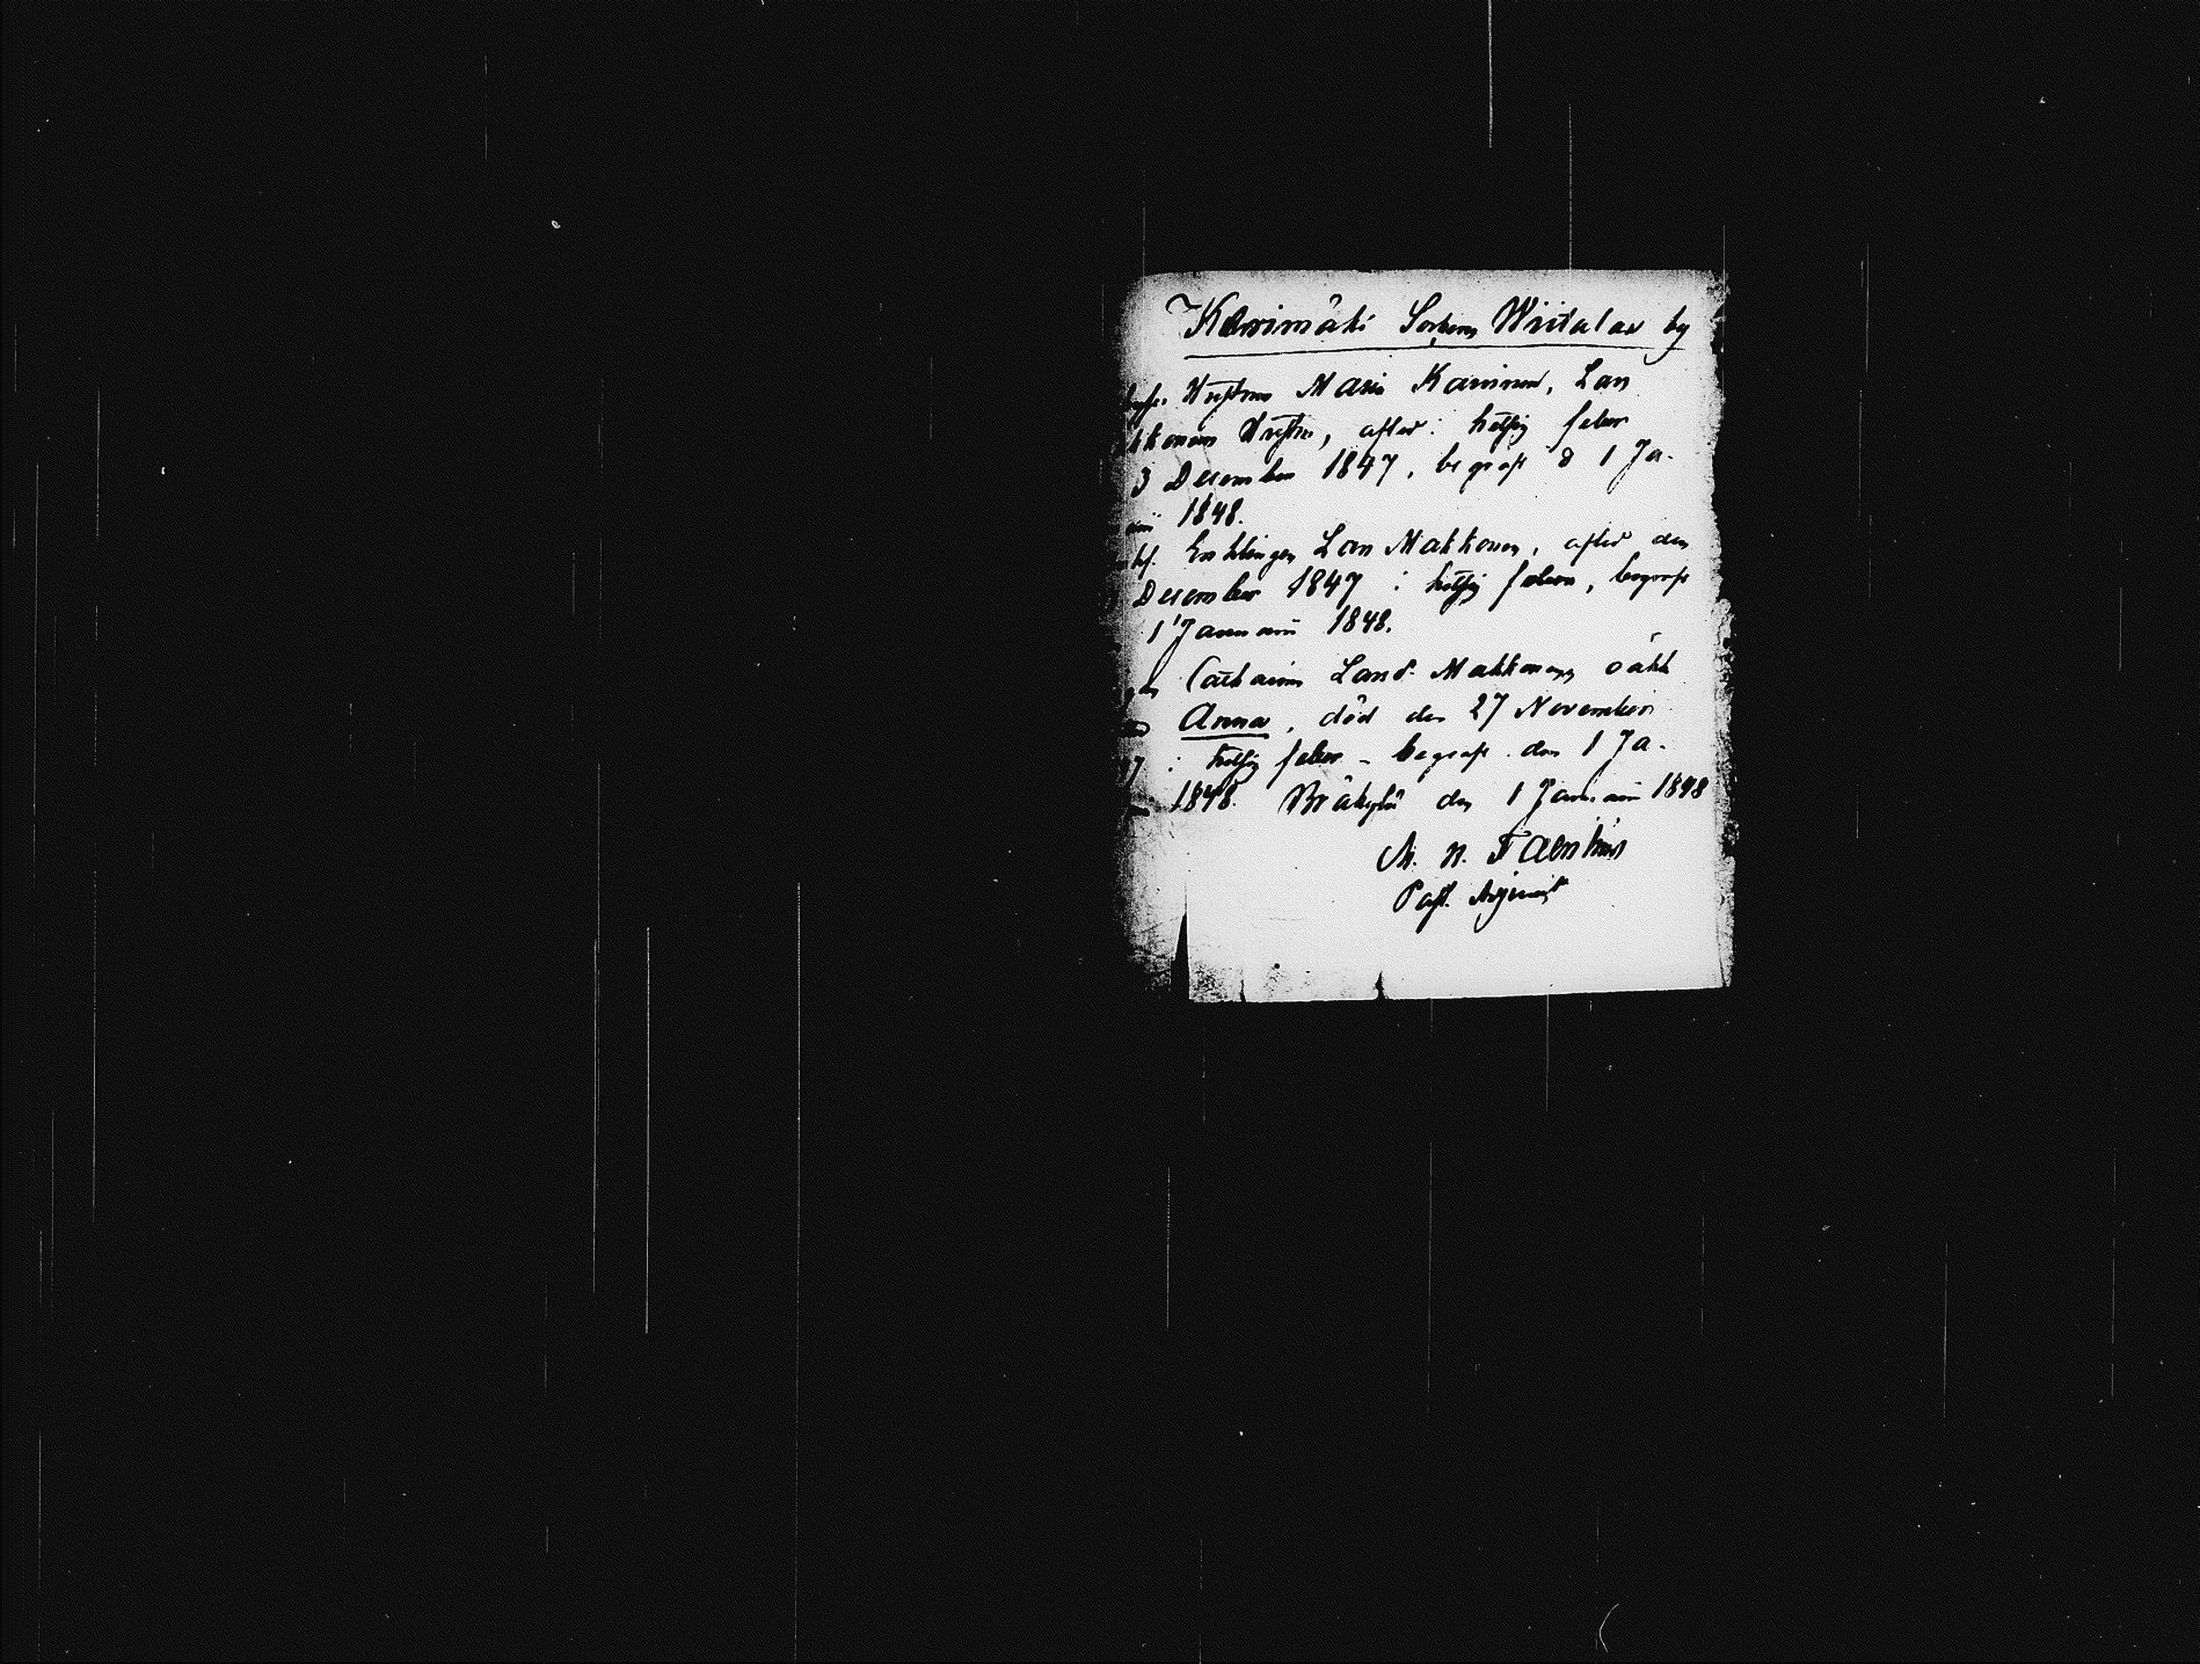 Kerimäki Sockens Wiitalax by
Hustrun Maria Karvinen, Lars
kkonens Hustru, afled. i hetsig feber
3 December 1847, begrafn d 1 Ja-
rii 1848.
Enklingen Lars Makkonen, afled den
December 1847 i hetsig feber, begrafn
1 Januarii 1848.
Catharina Larsd. Makkonens oäkta
Anna, död den 27 November
7 i hetsig feber begrafn den 1 Ja-
1848. den 1 Januarii 1848
Past. Adjunct